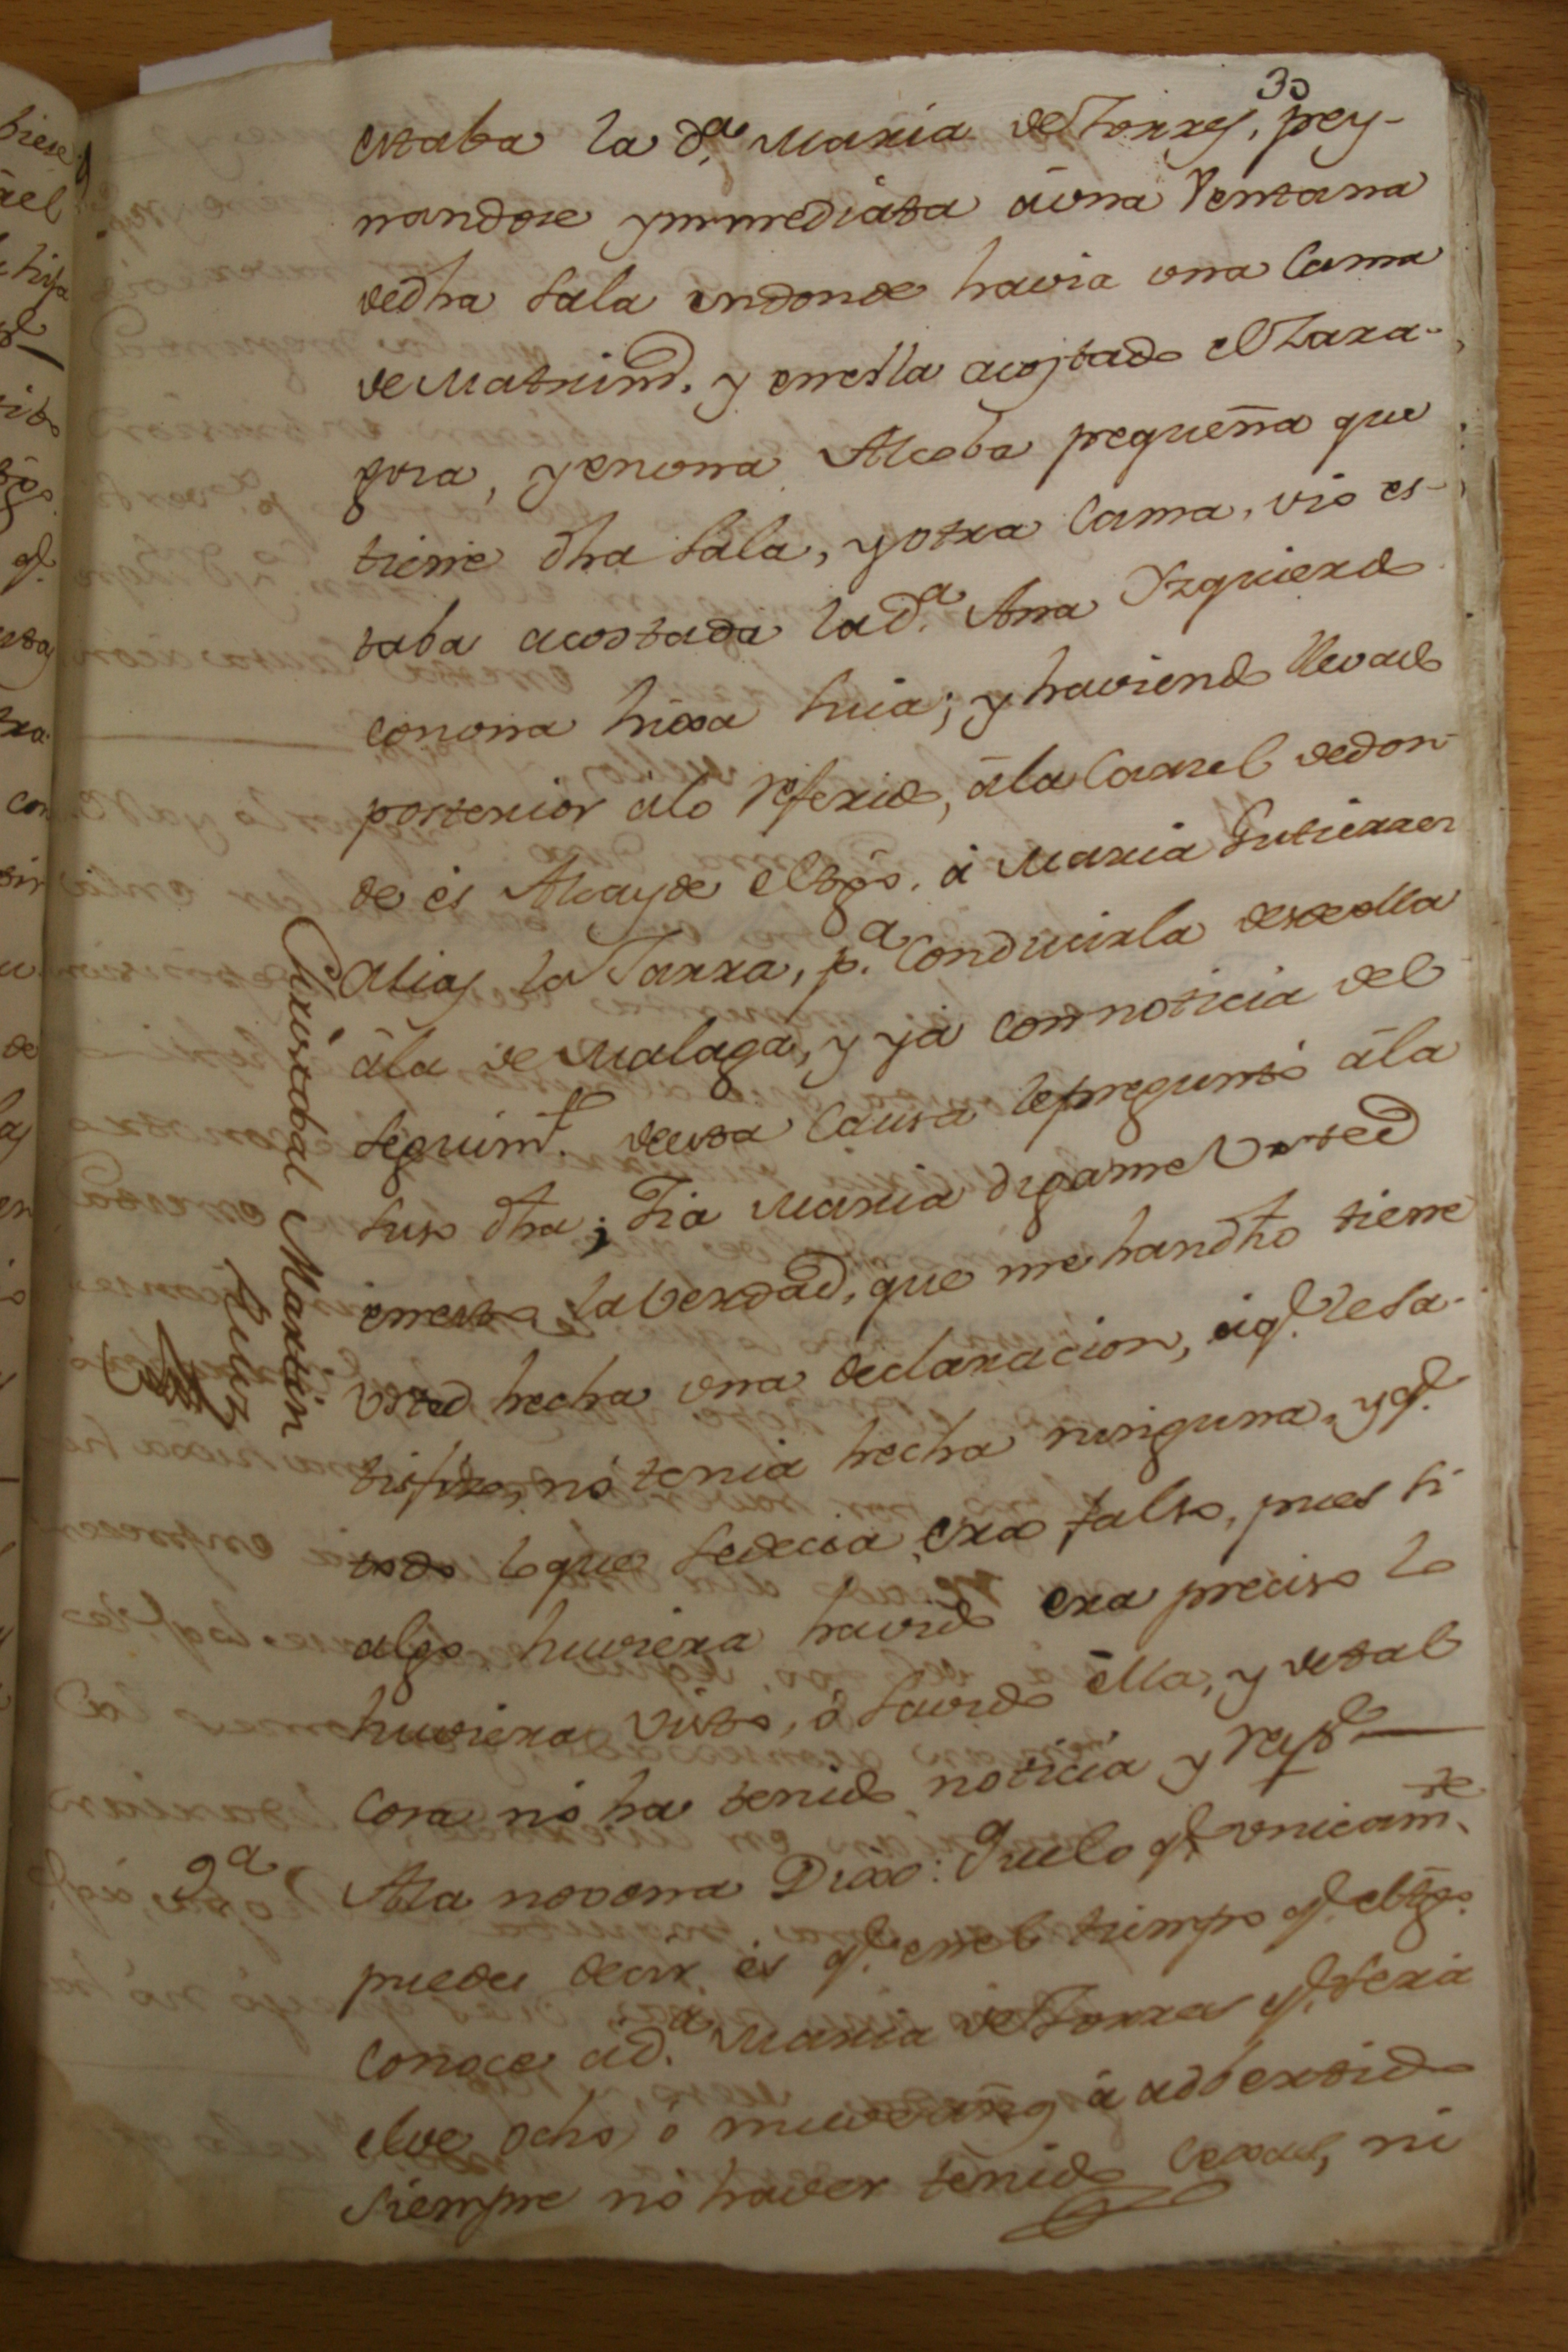 30
estaba la d.ª Maria de Torres, pey-
nandose ymmediata áuna Ventana
dedha sala endonde havia una Cama
de Matrim.º, y enella acostado el Zara-
goza, y enuna Alcoba pequeña que
tiene dha sala, y otra Cama, vio es-
taba acostada la d.ª Ana Yzquierdo
conuna hixa suia; y haviendo llevado
posterior álo referido, ála Carzel dedon-
de es Alcayde el tgô. á Maria Gutierrez
Alias la Parra, p.ª Conducirla desdeella
ála de Malaga, y yá connoticia del
seguim.to deesta Causa lepreguntó ála
suso dha; Tia Maria digame Vsted
enesto la berdad, que mehandho tiene
Vsted hecha una declaracion, áq.e lesa-
tisfizo, nó tenia hecha ninguna, yq.e
todo loque sedecia era falso, pues si
algo huviera havido era preciso lo
huviera visto, ó savido ella, y detal
cosa nó ha tenido noticia y resp.de
9ª
Ala novena Dixo: Quelo q.e unicam.te
puede decir es q.e enel tiempo q.e eltgô.
conoce ád.ª Maria de Torres q.e será
elde ocho, ó nueve añs, á adbertido
siempre nó haver tenido Caudal, ni
Christobal Martin
Ruiz